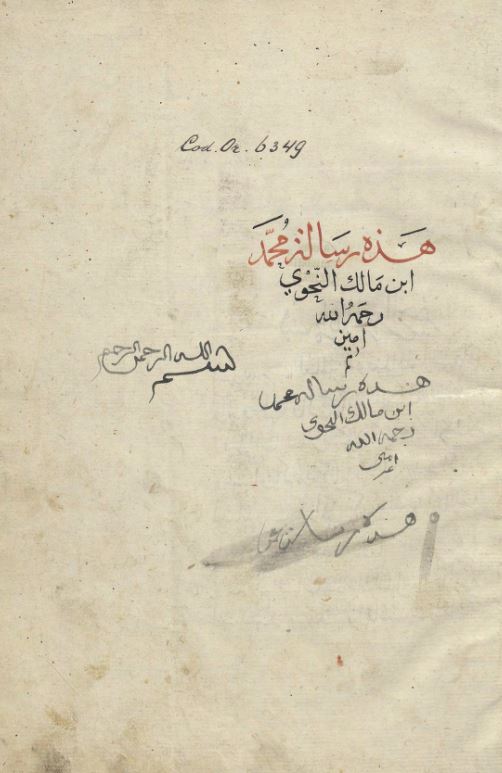 Cod. Or. 6349
هَذِه رِسَالة مُحمَّد
ابن مَالك النّحْوي
رحمَهُ الله
امين
تم
بسم الله الرحمن الرحيم
هذه رسالة محمد
ابن مالك النحوي
رحمه الله
امين
هذه